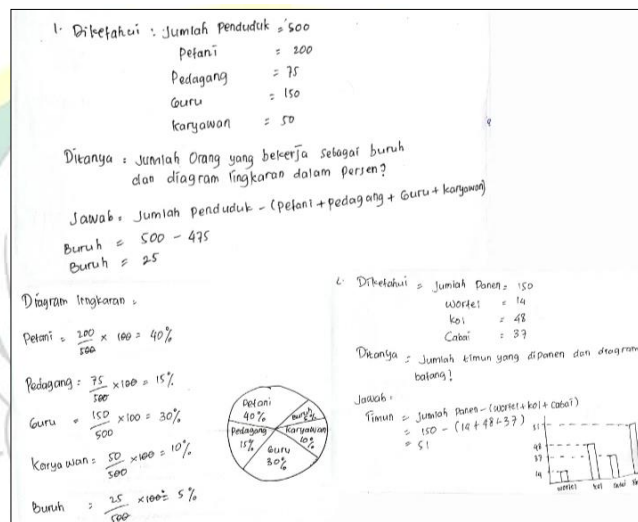 1. Diketahui : Jumlah Penduduk = 500
Petani = 200
Pedagang = 75
Guru = 150
Karyawan = 50
Ditanya : Jumlah Orang yang bekerja sebagai buruh
dan diagram lingkaran dalam persen?
Jawab : Jumlah Penduduk - (Petani + pedagang + Guru + karyawan)
Buruh = 500 - 475
Buruh = 25
Diagram lingkaran :
Petani = 200/500 × 100 = 40%
Pedagang = 75/500 × 100 = 15%
Guru = 150/500 × 100 = 30%
Karyawan = 50/500 × 100 = 10%
Buruh = 25/500 × 100 = 5%
Petani
40%
Buruh
Karyawan
10%
Pedagang
15%
Guru
30%
Diketahui = Jumlah Panen = 150
Wortel = 14
Kol = 48
Cabai = 37
Ditanya : Jumlah timun yang dipanen dan diagram
batang!
Jawab :
Timun = Jumlah Panen - (wortel + kol + cabai)
= 150 - (14 + 48 + 37)
= 51
51
48
37
14
wortel kol cabai